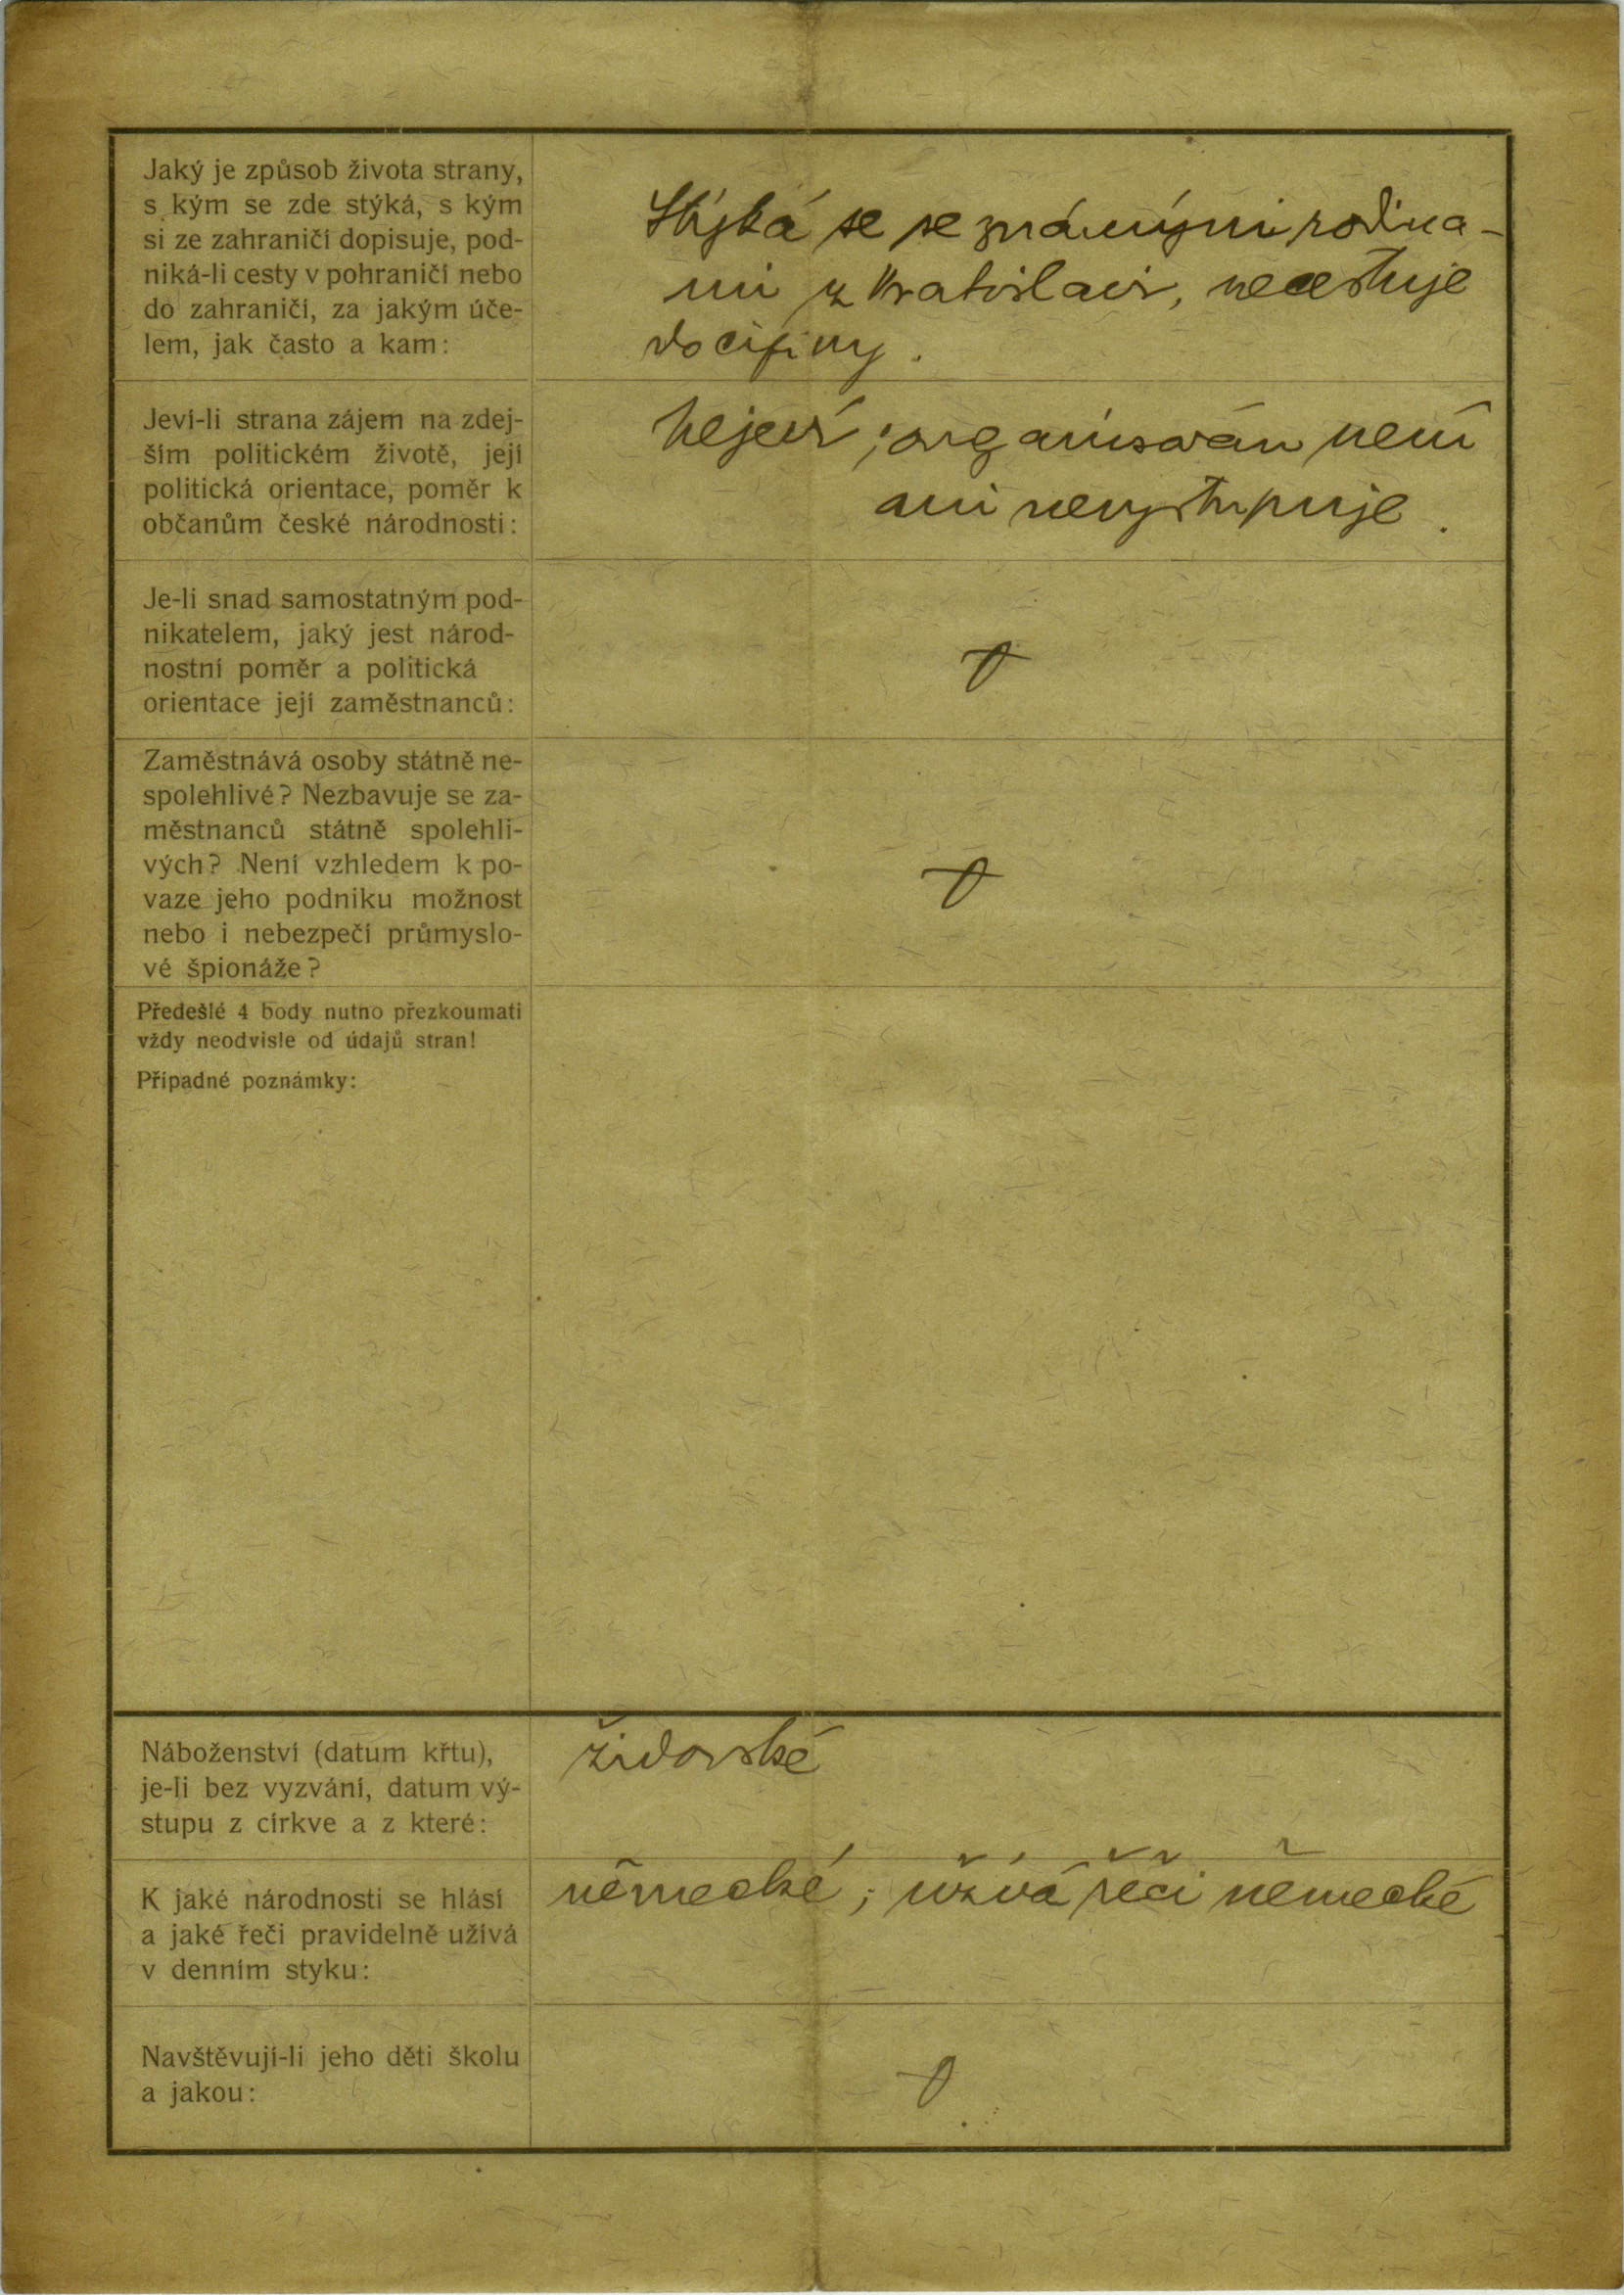 Jaký je způsob života strany,
s kým se zde stýká, s kým
si ze zahraničí dopisuje, pod-
niká-li cesty v pohraničí nebo
do zahraničí, za jakým úče-
lem, jak často a kam:
Stýká se se známými rodina-
mi z Vratislavi, necestuje
do ciziny.
Jeví-li strana zájem na zdej-
ším politickém životě, její
politická orientace, poměr k
občanům české národnosti:
Nejeví; organisován není
ani nevystupuje.
Je-li snad samostatným pod-
nikatelem, jaký jest národ-
nostní poměr a politická
orientace její zaměstnanců:
Zaměstnává osoby státně ne-
spolehlivé? Nezbavuje se za-
městnanců státně spolehli-
vých? Není vzhledem k po-
vaze jeho podniku možnost
nebo i nebezpečí průmyslo-
vé špionáže?
Předešlé 4 body nutno přezkoumati
vždy neodvisle od údajů stran!
Případné poznámky:
Náboženství (datum křtu),
je-li bez vyzvání, datum vý-
stupu z církve a z které:
židovské
K jaké národnosti se hlásí
a jaké řeči pravidelně užívá
v denním styku:
německé; užívá řeči německé
Navštěvují-li jeho děti školu
a jakou: